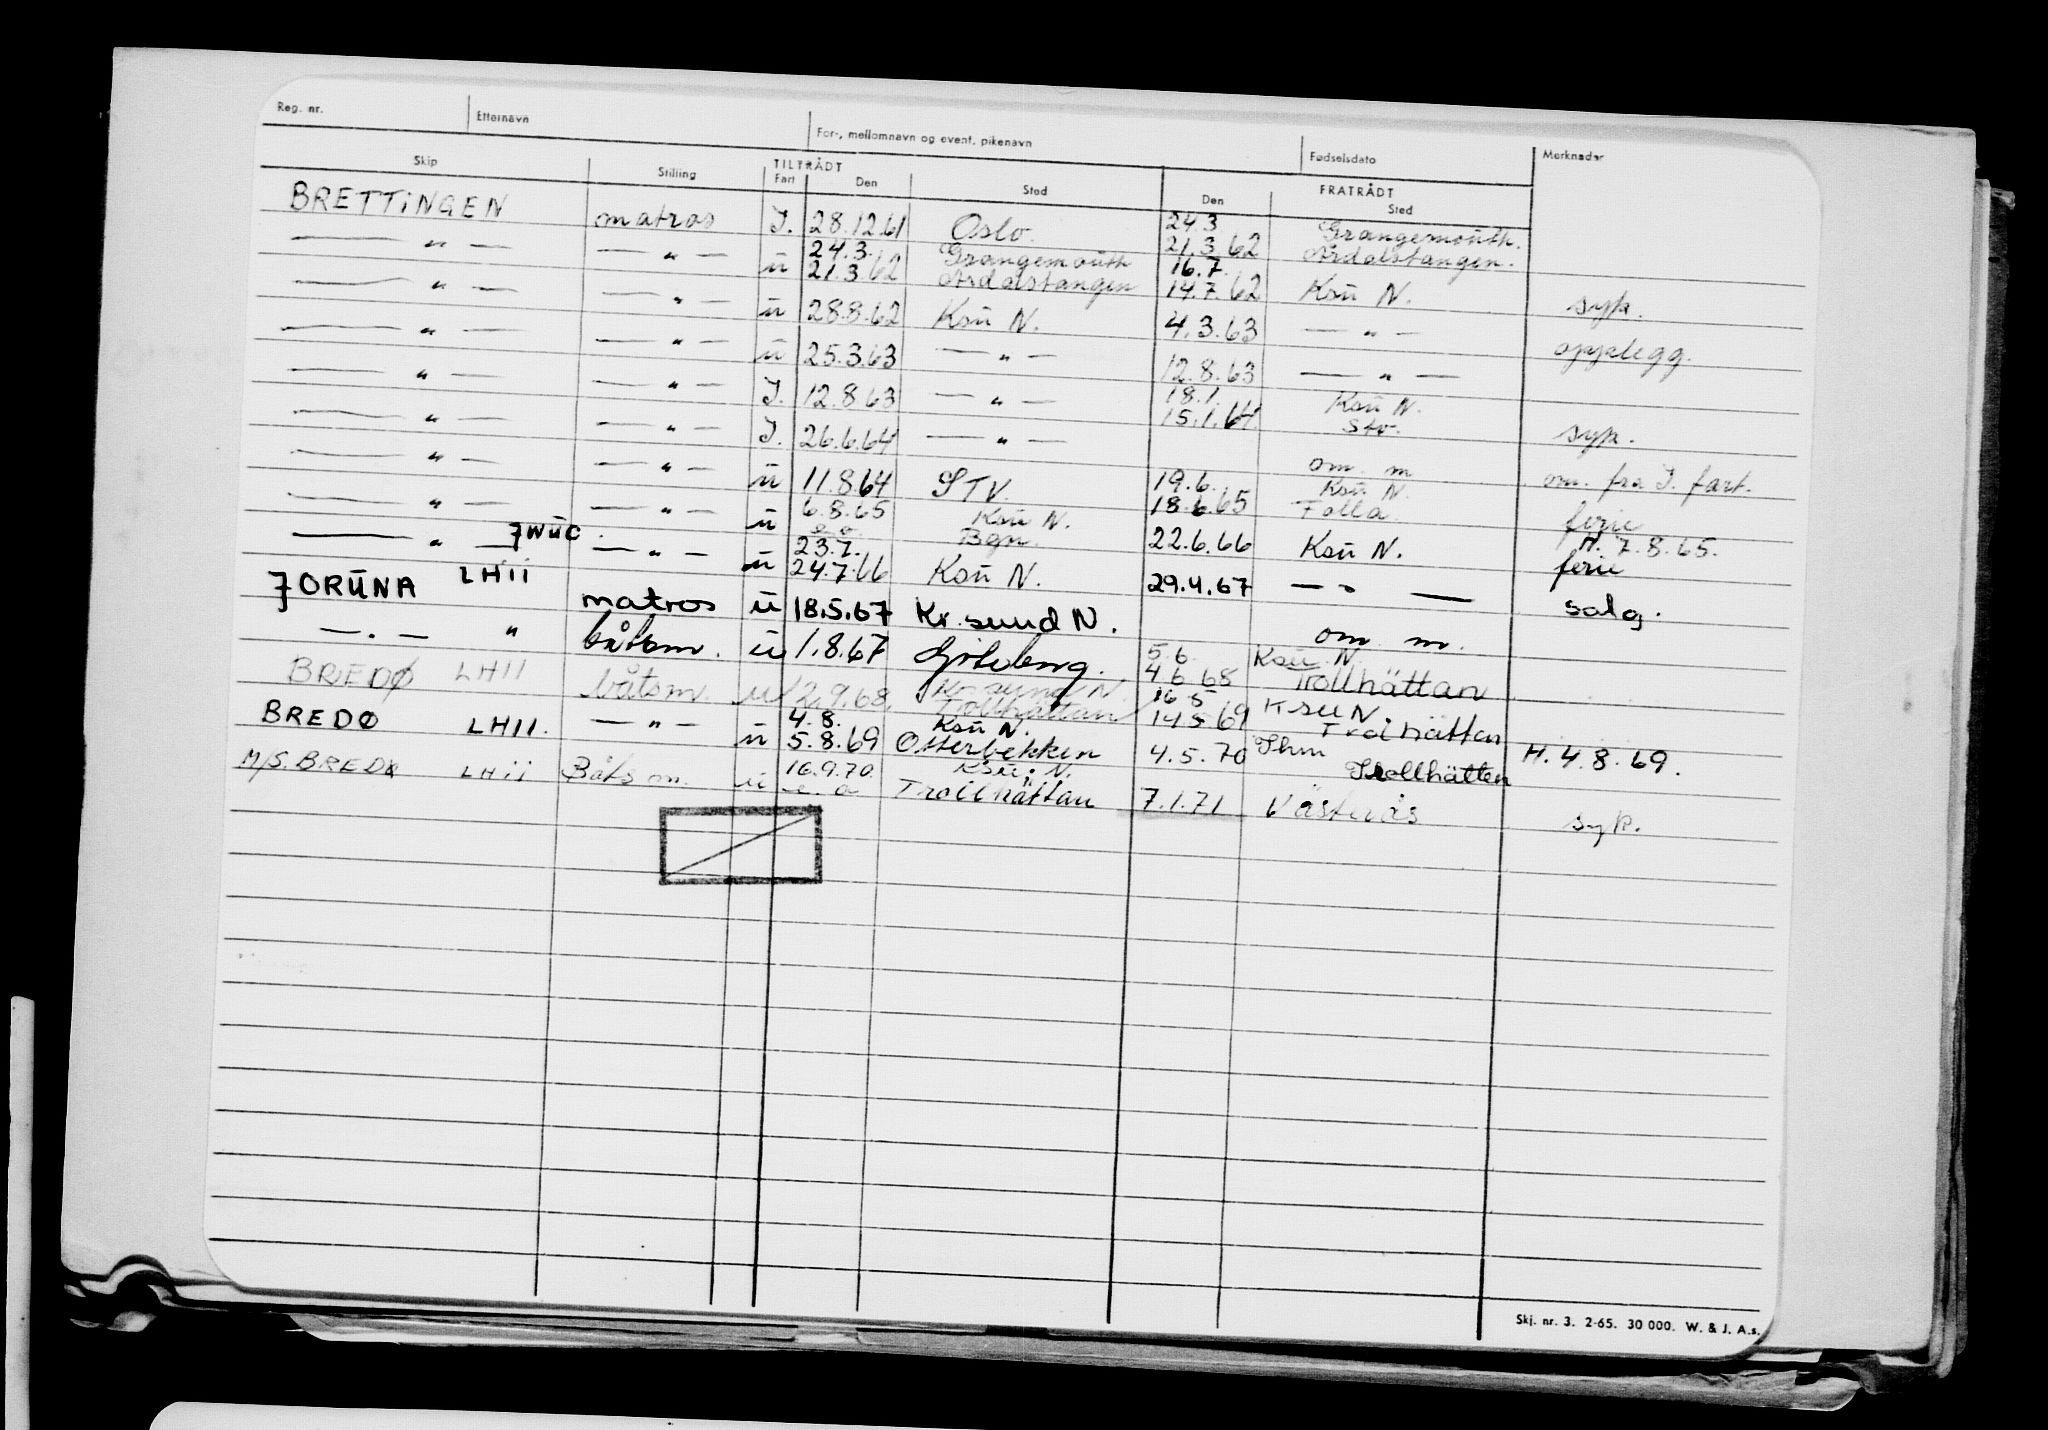 Reg. nr. Etternavn For-, mellomnavn og event. pikenavn Fødselsdato Merknader
Skip Stilling TILTRÅDT FRATRÅDT
Fart Den Sted Den Sted
BRETTINGEN matros I. 28.12.61 Oslo. 24.3 Grangemouth.
21.3.62 Årdalstangen.
— " — — " — ū 24.3. Grangemouth 16.7.
21.3.62 Årdalstangen 14.7.62 Ksū N. syk.
— " — — " — ū 28.8.62 Ksū N. 4.3.63 — " — opplegg.
— " — — " — ū 25.3.63 — " — 12.8.63 — " —
— " — — " — I. 12.8.63 — " — 18.1. Ksū N.
15.1.64 Stv. syk.
— " — — " — I. 26.6.64 — " — om. m om. fra I. fart.
— " — — " — ū 11.8.64 STV. 19.6. Ksū N.
18.6.65 Folla. ferie
— " — — " — ū 6.8.65 Ksū N. H. 7.8.65.
Bgn. 22.6.66 Ksū N. ferie
— " — JWUC — " — ū 23.7.
24.7.66 Ksū N. 29.4.67 — " — salg.
JORŪNA LHII matros ū 18.5.67 Kr. sund N. om m.
— " — " båtsm. ū 1.8.67 Göteborg. 5.6. Ksū N.
4.6.68 Trollhättan
BREDØ LHII båtsm. ū 2.9.68 Kr. sund N. 16.5 Ksu N.
Trollhättan 14.5.69 Trollhättan
BREDØ LHII. — " — ū 4.8. Ksū N.
5.8.69 Otterbekken 4.5.70 Trollhätten H. 4.8.69.
M/S. BREDØ LHii Båtsm. ū 16.9.70. Ksū. N.
Trollhättan 7.1.71 Västerås syk.
Skj. nr. 3. 2-65. 30 000. W. & J. A.s.